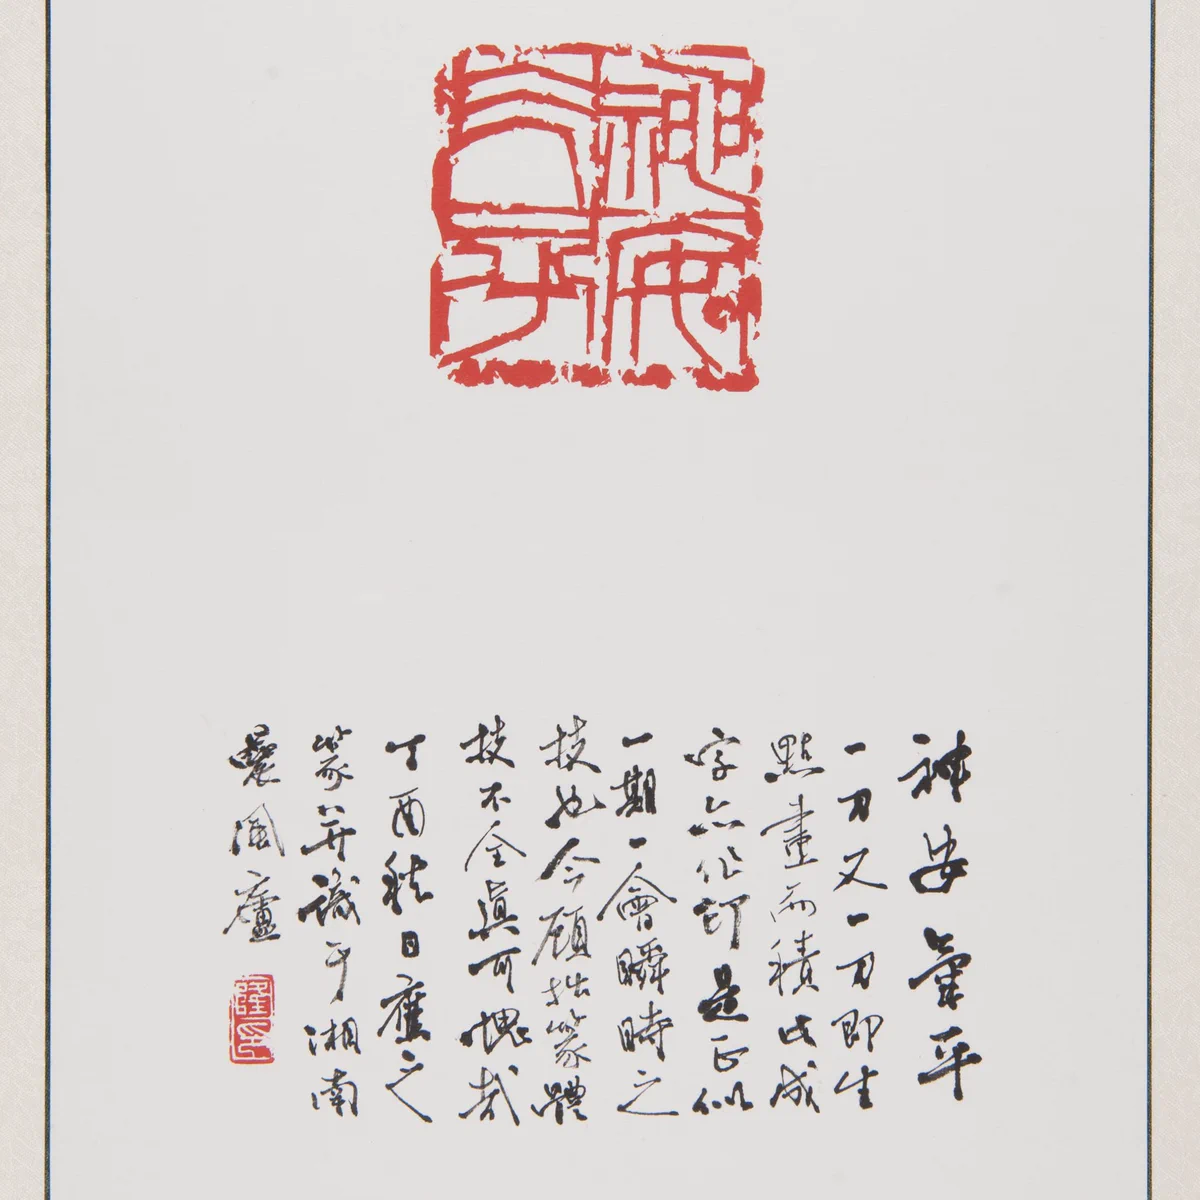 神安气平
神安气平
一刀又一刀即生
點畫而積此成
字亦作訂是正似
一期一會瞬時之
技也今顧拙篆體
技不全真可愧哉
丁酉秋日應之
篆并識于湘南
風廬